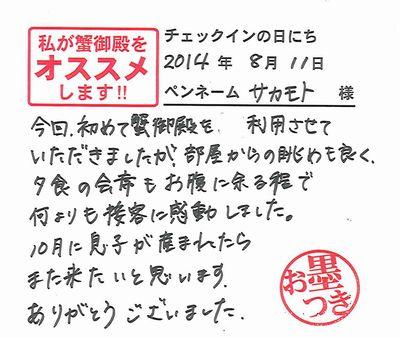 私が蟹御殿を
オススメ
します!!
チェックインの日にち
2014年 8月 11日
ペンネーム サカモト 様
今回、初めて蟹御殿を、利用させて
いただきましたが、部屋からの眺めも良く、
夕食の会席もお腹に余る程で
何よりも接客に感動しました。
10月に息子が産まれたら
また来たいと思います。
ありがとうございました。
お墨つき